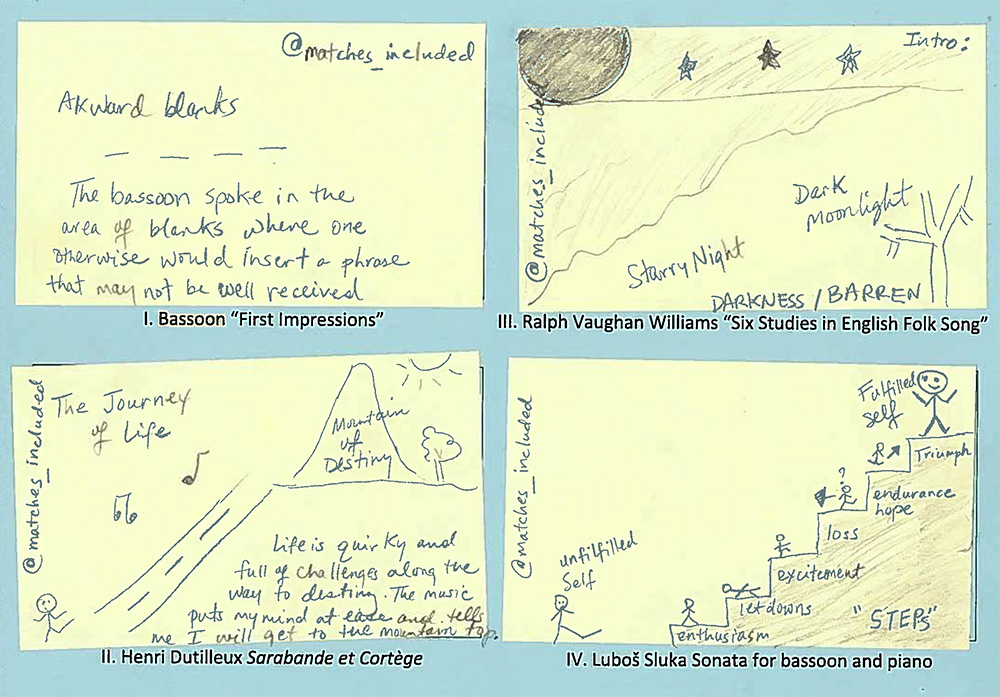 @matches_included
AKward blanks
The bassoon spoke in the
area of blanks where one
otherwise would insert a phrase
that may not be well received
I. Bassoon “First Impressions”
Intro:
@matches_included
Dark
Moonlight
Starry Night
DARKNESS / BARREN
III. Ralph Vaughan Williams “Six Studies in English Folk Song”
@matches_included
The Journey
of Life
Mountain
of
Destiny
Life is quirky and
full of challenges along the
way to destiny. The music
puts my mind at ease and tells
me I will get to the mountain top.
II. Henri Dutilleux Sarabande et Cortège
@matches_included
Fulfilled
self
Triumph
?
endurance
hope
loss
excitement
letdowns
enthusiasm
unfilfilled
Self
"STEPS"
IV. Luboš Sluka Sonata for bassoon and piano